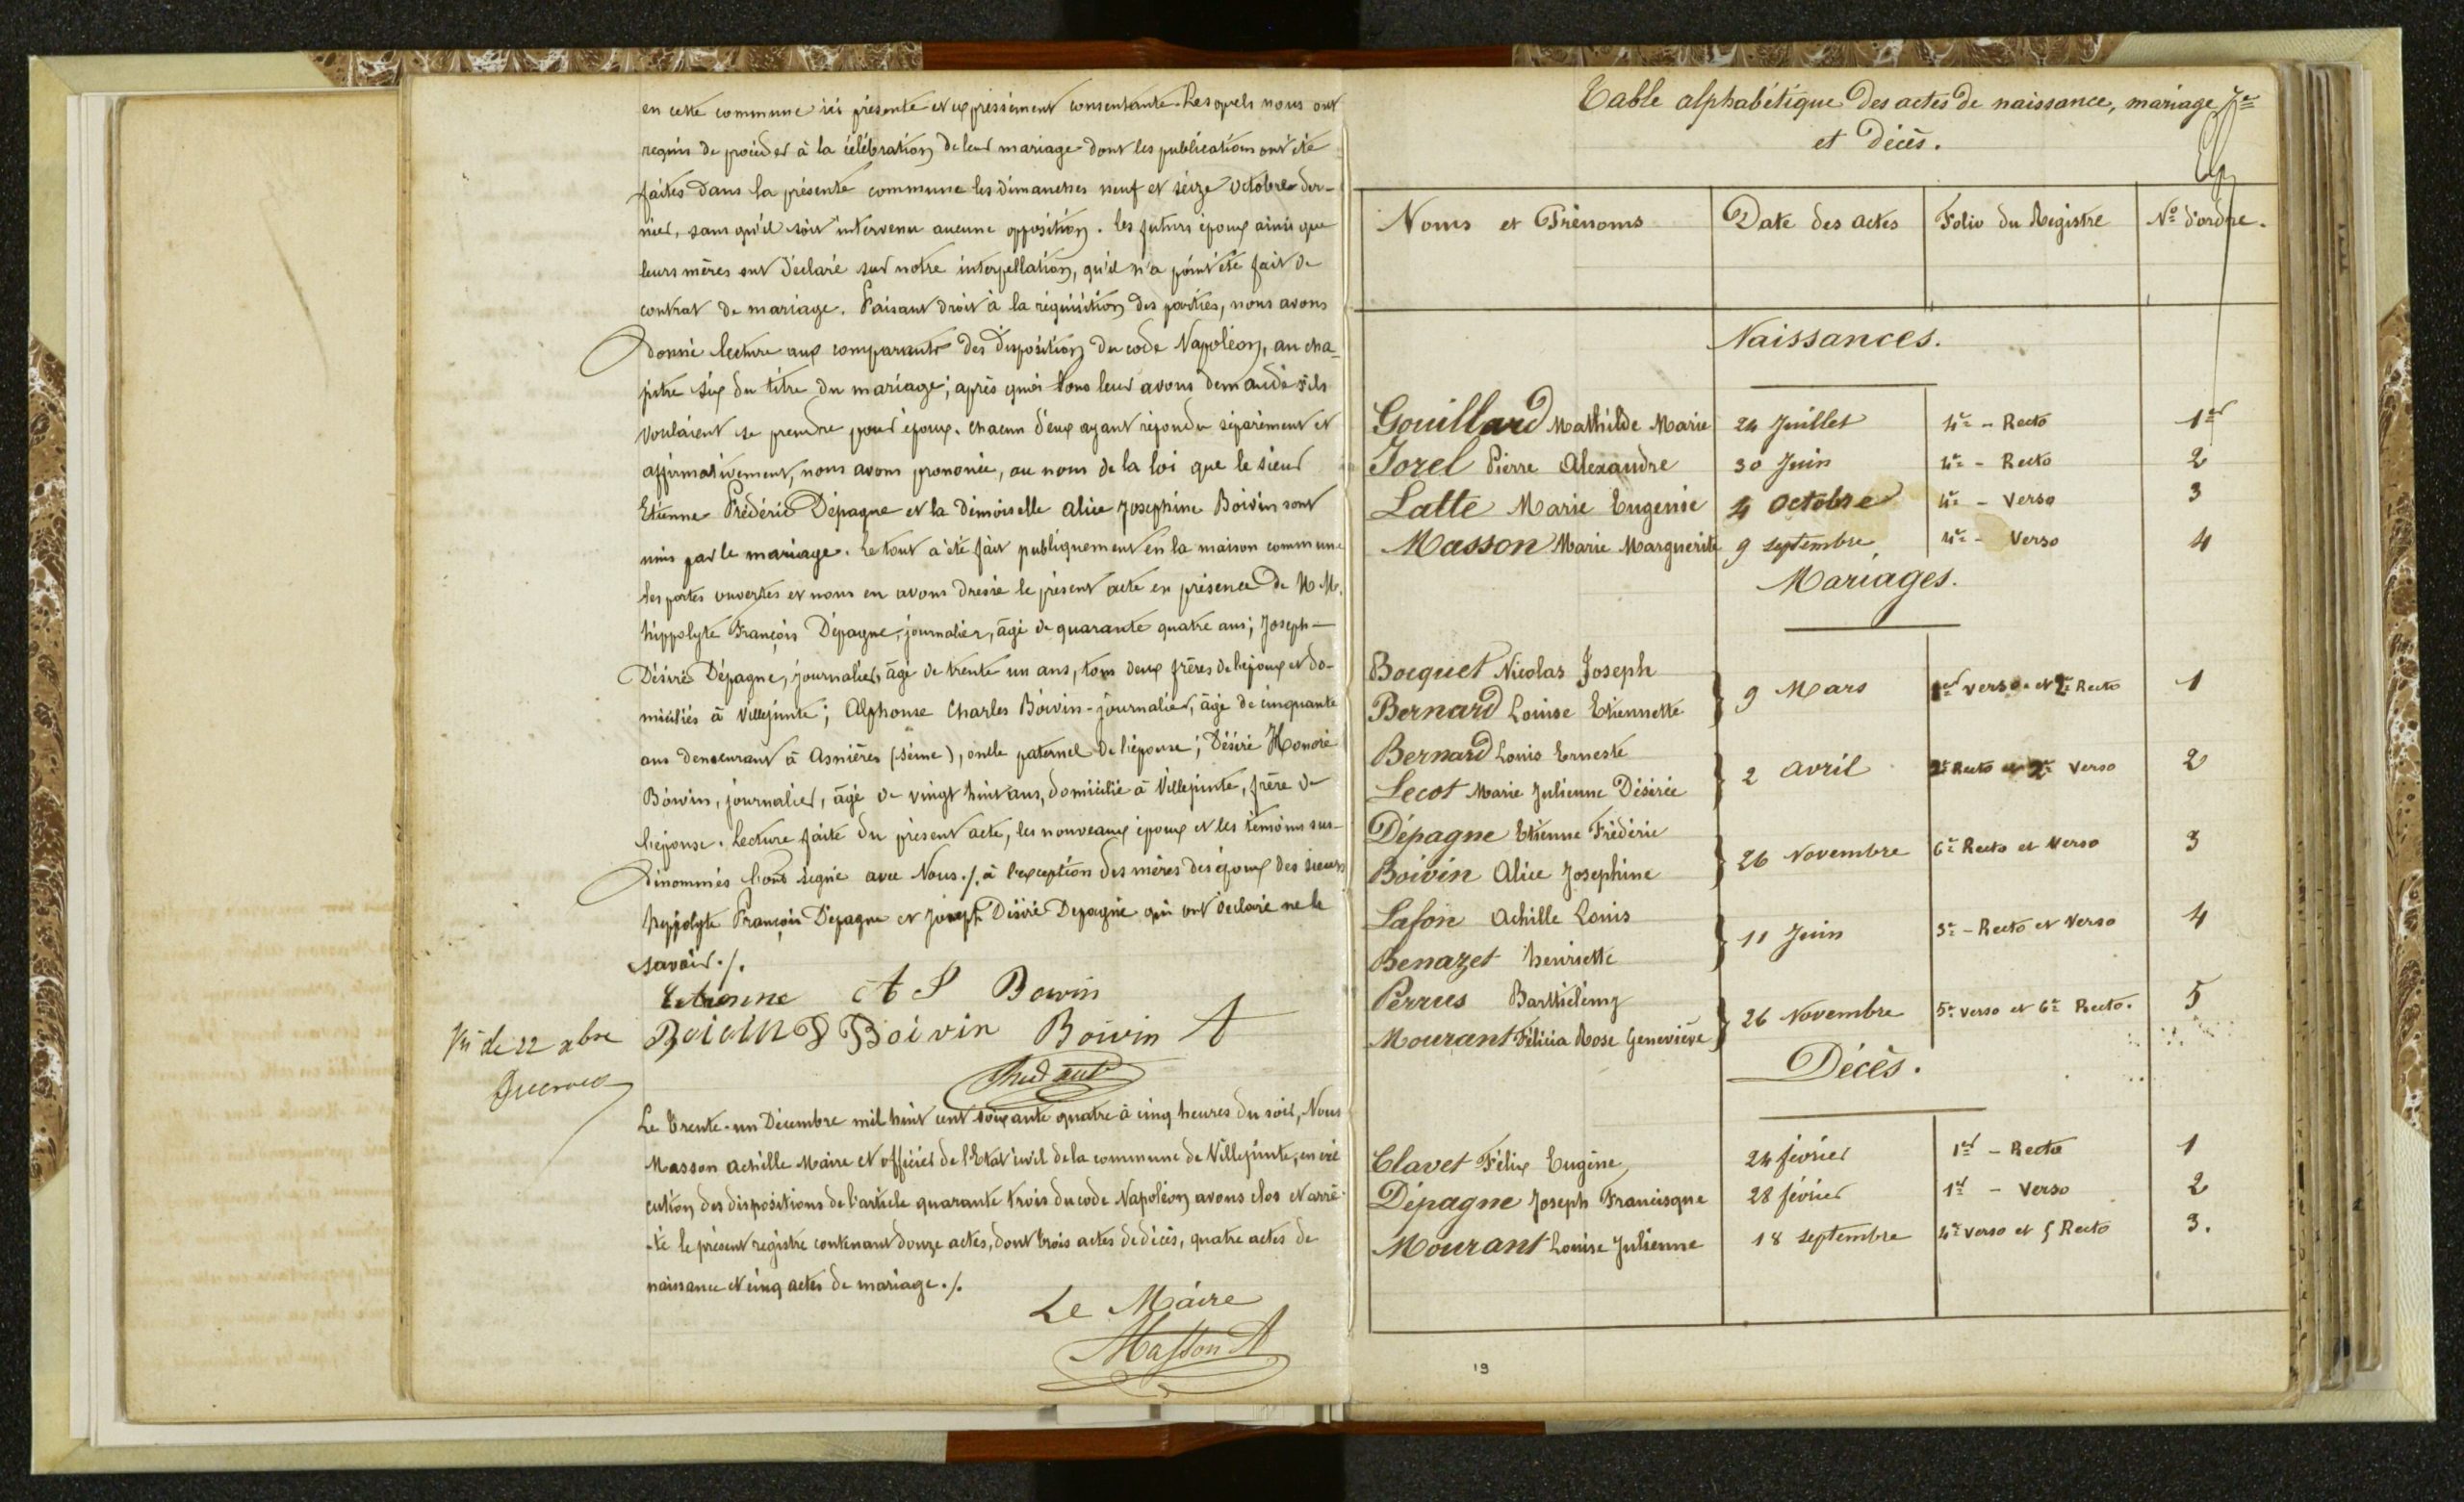 en cette commune ici présente et expressément consentante. Lesquels nous ont
requis de procéder à la célébration de leur mariage dont les publications ont été
faites dans la présente commune les dimanches neuf et seize octobre der-
nier, sans qu'il soit intervenu aucune opposition. les futurs époux ainsi que
leurs mères ont déclaré sur notre interpellation, qu'il n'a point été fait de
contrat de mariage. Faisant droit à la réquisition des parties, nous avons
donné lecture aux comparants des disposition du code Napoléon, au cha-
pitre six du titre du mariage; après quoi Nous leur avons demandé s'ils
voulaient se prendre pour époux. chacun d'eux ayant répondu séparément et
affirmativement, nous avons prononcé, au nom de la loi que le sieur
Etienne Frédéric Dépagne et la demoiselle alice Josephine Boivin sont
unis par le mariage. Le tout a été fait publiquement en la maison commune
les portes ouvertes et nous en avons dressé le présent acte en présence de M.M.
hippolyte François Dépagne, journalier, âgé de quarante quatre ans; Joseph-
Désiré Dépagne, journalier, âgé de trente un ans, tous deux frères de l'époux et do-
miciliés à Villejuste; Alphonse Charles Boivin-journalier, âgé de cinquante
ans demeurant à Asnières (Seine), oncle paternel de l'épouse; Désiré Honoré
Boivin, journalier, âgé de vingt huit ans, domicilié à Villejuste, frère de
l'épouse. Lecture faite du présent acte, les nouveaux époux et les témoins sus-
dénommés l'ont signé avec Nous./. à l'exception des mères des époux des sieurs
hyppolyte François Dépagne et Joseph Désiré Depagne qui ont déclaré ne le
savoir./.
Etienne A J Boivin
Boivin D Boivin Boivin A
Vu le 22 xbre
Le trente-un Décembre mil huit cent soixante quatre à cinq heures du soir, Nous
Masson achille Maire et officier de l'Etat civil de la commune de Villejuste, en exé
cution des dispositions de l'article quarante trois du code Napoléon avons clos et arrê-
-té le présent registre contenant douze actes, dont trois actes de décès, quatre actes de
naissance et cinq actes de mariage./.
Le Maire
Masson A
Table alphabétique des actes de naissance, mariage
et décès.
Noms et Prénoms Date des actes Folio du Registre No d'ordre.
Naissances.
Gouillard Mathilde Marie 24 Juillet 4e - Recto 1er
Jorel Pierre Alexandre 30 Juin 4e - Recto 2
Latte Marie Eugenie 4 Octobre 4e - Verso 3
Masson Marie Marguerite 9 septembre 4e - Verso 4
Mariages.
Bocquet Nicolas Joseph
Bernard Louise Etiennette 9 Mars 1er verso et 2e Recto 1
Bernard Louis Erneste
Lecot Marie Julienne Désirée 2 avril 2e Recto et 2e Verso 2
Dépagne Etienne Frédéric
Boivin Alice Josephine 26 Novembre 6e Recto et Verso 3
Lafon Achille Louis
Benazet henriette 11 Juin 3e - Recto et Verso 4
Perrus Barthélemy
Mourant Félicia Rose Geneviève 26 Novembre 5e verso et 6e Recto. 5
Décès.
Clavet Félix Eugène 24 février 1er - Recto 1
Dépagne Joseph Francisque 28 février 1er - Verso 2
Mourant Louise Julienne 18 septembre 4e verso et 5 Recto 3.
19